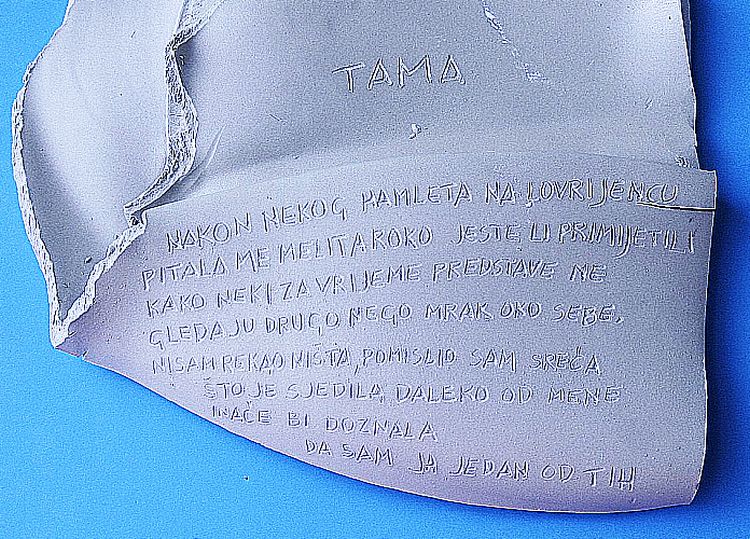 TAMA
NAKON NEKOG HAMLETA NA LOVRIJENCU
PITALA ME MELITA ROKO JESTE LI PRIMIJETILI
KAKO NEKI ZA VRIJEME PREDSTAVE NE
GLEDAJU DRUGO NEGO MRAK OKO SEBE.
NISAM REKAO NIŠTA, POMISLIO SAM SREČA
ŠTO JE SJEDILA DALEKO OD MENE
INAČE BI DOZNALA
DA SAM JA JEDAN OD TIH